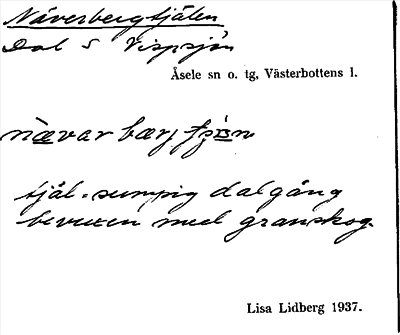 Näverbergtjälen
Dal S Vispsjön
Åsele sn o. tg, Västerbottens l.
tjäl = sumpig dalgång
bevuxen med granskog.
Lisa Lidberg 1937.